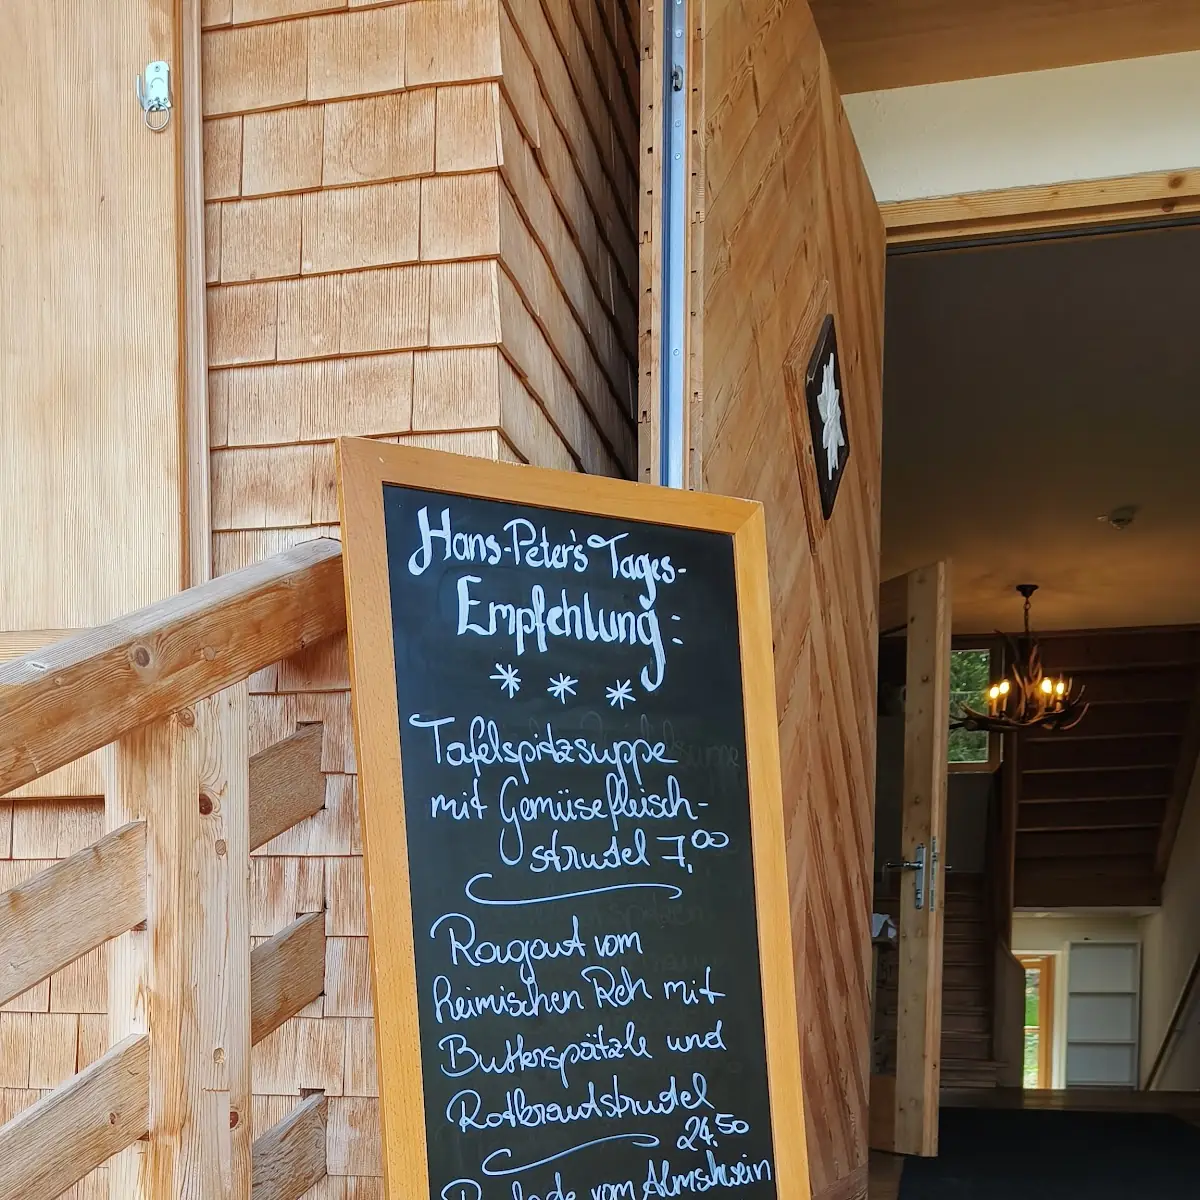 Hans-Peter's Tages-
Empfehlung:
Tafelspitzsuppe
mit Gemüsefleisch-
strudel 7,00
Ragout vom
heimischen Reh mit
Butterspätzle und
Rotkrautstrudel
24,50
vom Almschwein